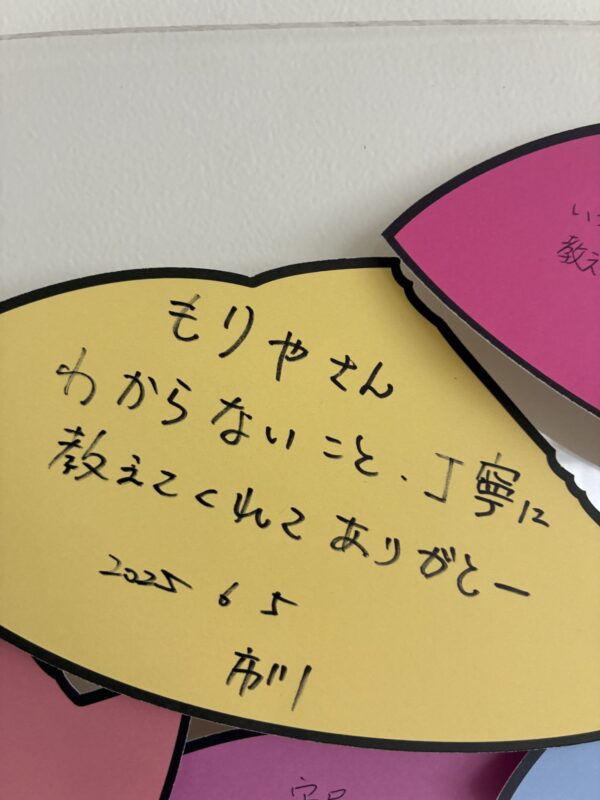 もりやさん
わからないこと、丁寧に
教えてくれてありがとー
2025 6 5
市川
教え